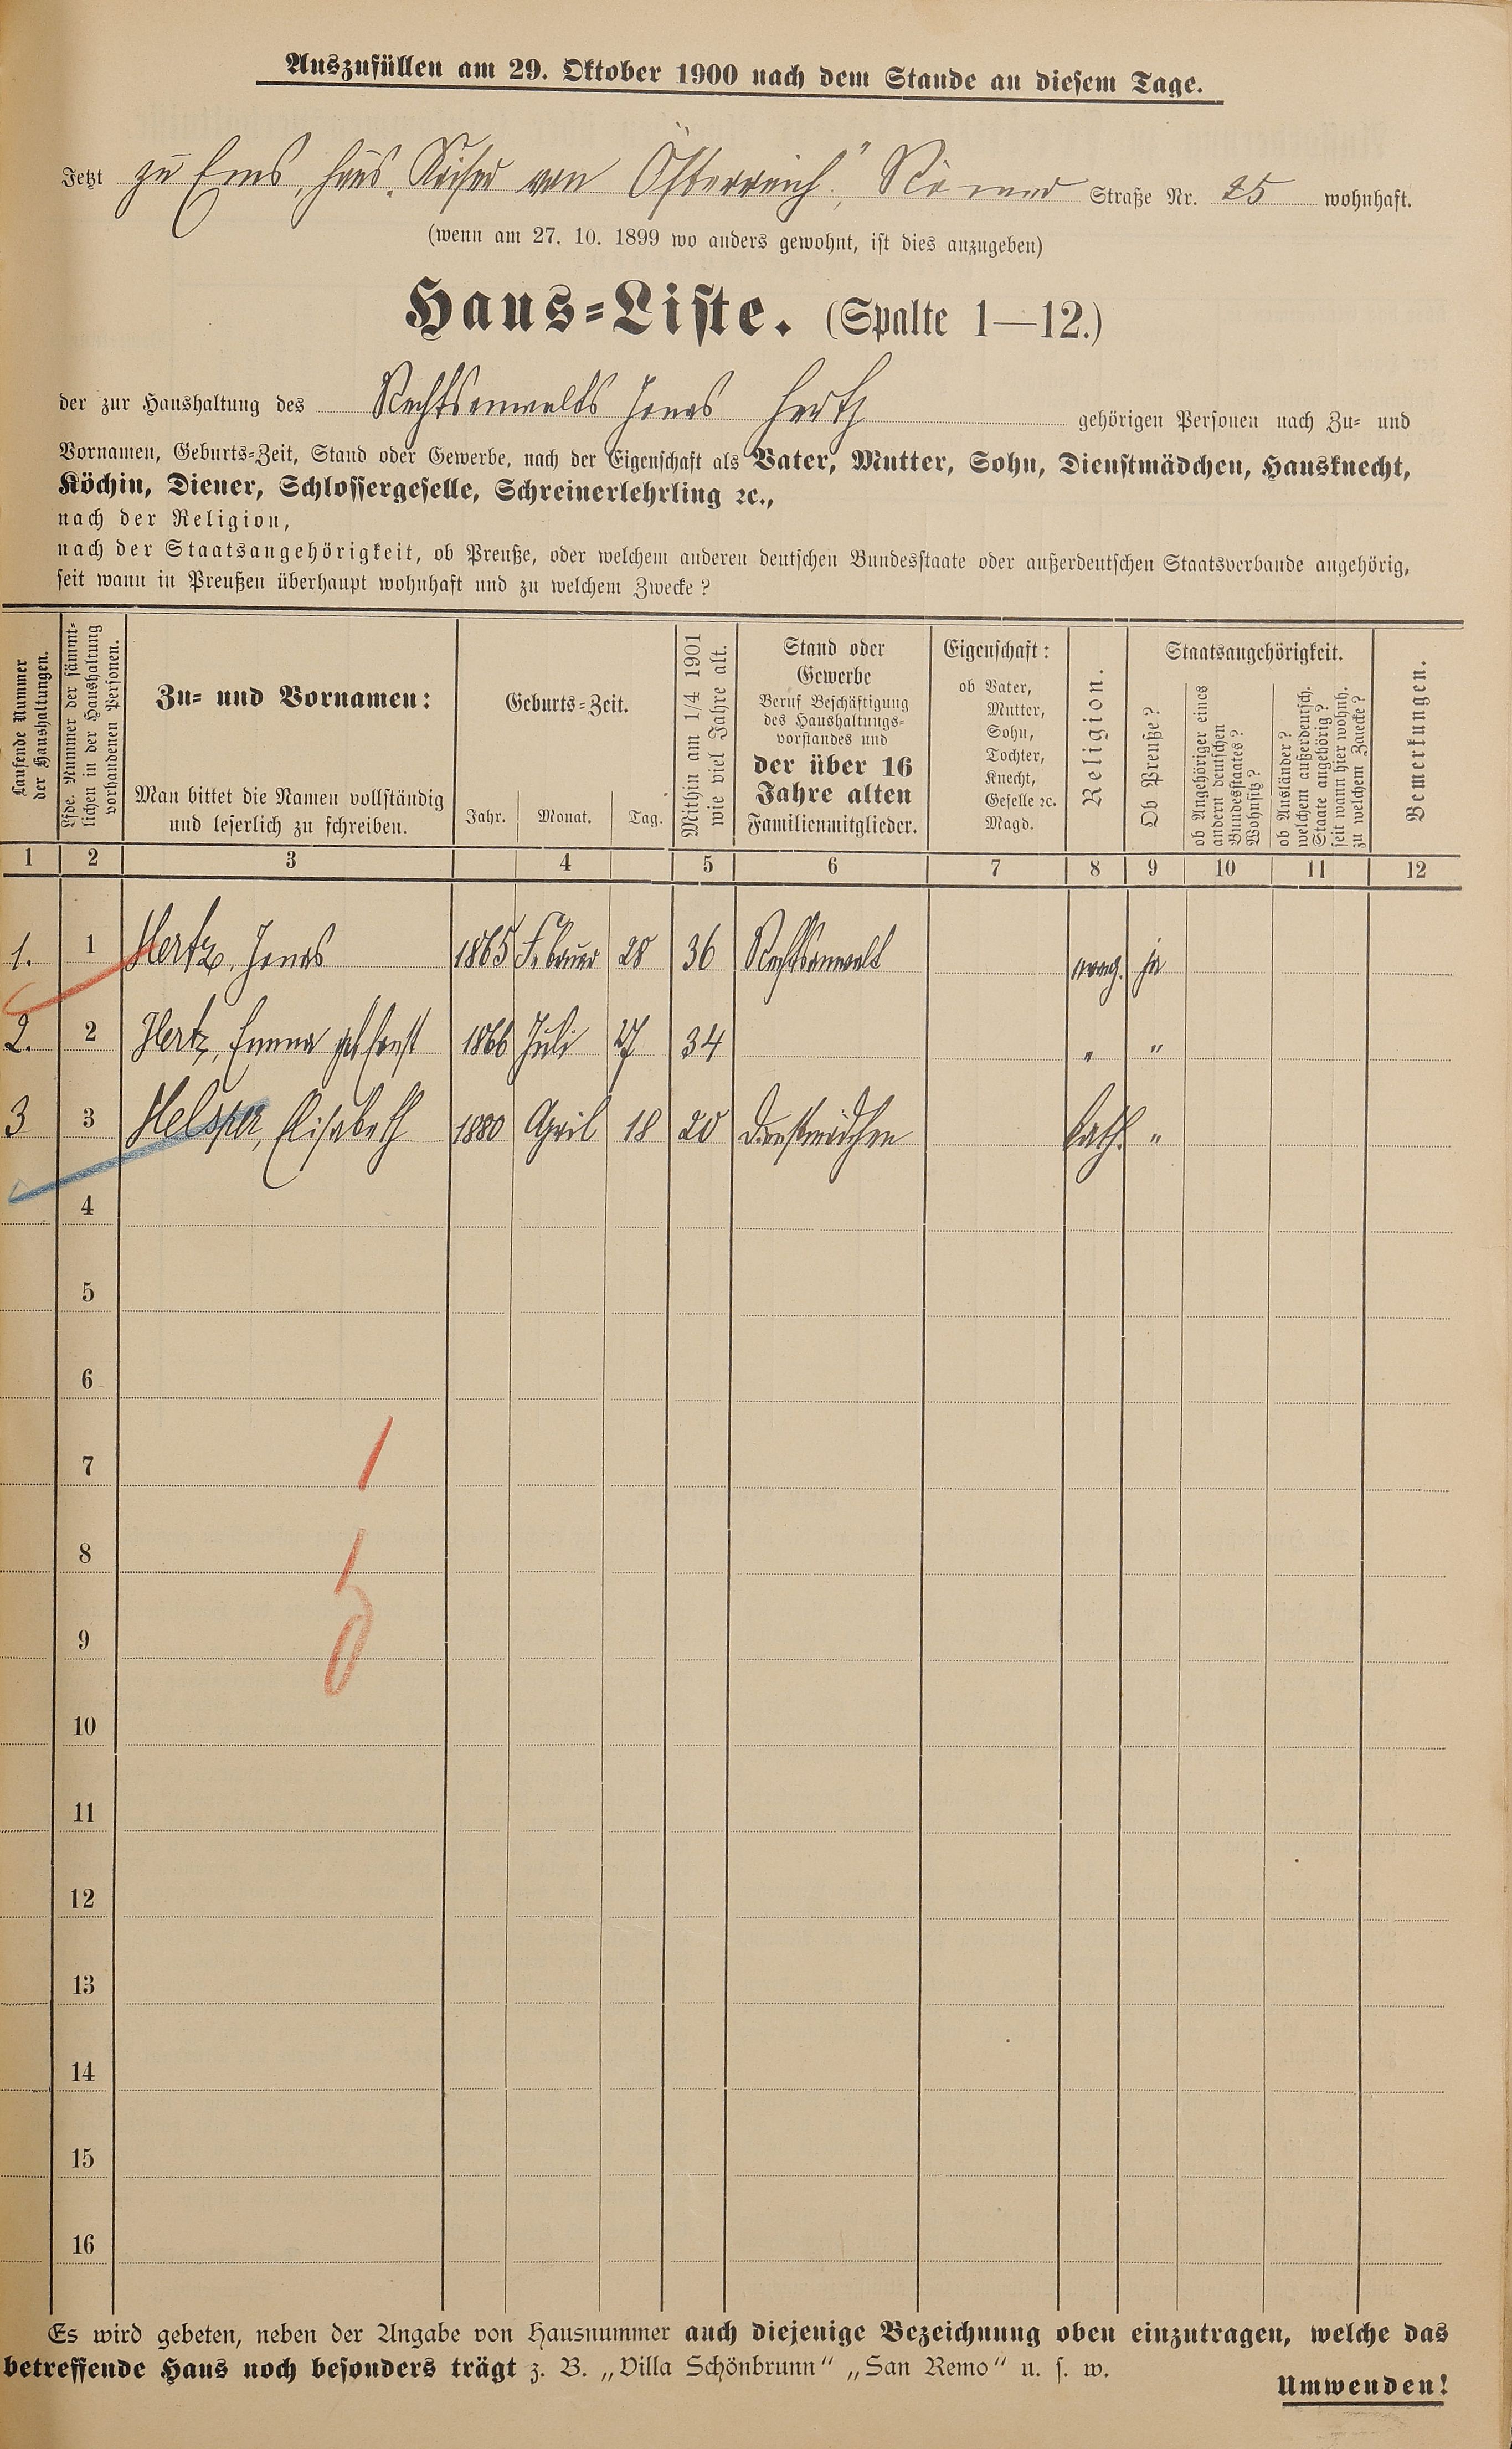 Auszufüllen am 29. Oktober 1900 nach dem Stande an diesem Tage.
Jetzt zu Ems, Haus „Kaiser von Österreich", Römer Straße Nr. 25 wohnhaft.
(wenn am 27. 10. 1899 wo anders gewohnt, ist dies anzugeben)
Haus-Liste. (Spalte 1—12.)
der zur Haushaltung des Rechtsanwalts Jonas Hertz gehörigen Personen nach Zu- und
Vornamen, Geburts-Zeit, Stand oder Gewerbe, nach der Eigenschaft als Vater, Mutter, Sohn, Dienstmädchen, Hausknecht,
Köchin, Diener, Schlossergeselle, Schreinerlehrling ꝛc.,
nach der Religion,
nach der Staatsangehörigkeit, ob Preuße, oder welchem anderen deutschen Bundesstaate oder außerdeutschen Staatsverbande angehörig,
seit wann in Preußen überhaupt wohnhaft und zu welchem Zwecke?
Laufende Nummer
der Haushaltungen.
Lfde. Nummer der sämmt-
lichen in der Haushaltung
vorhandenen Personen.
Zu- und Vornamen:
Man bittet die Namen vollständig
und leserlich zu schreiben.
Geburts-Zeit.
Jahr. Monat. Tag.
Mithin am 1/4 1901
wie viel Jahre alt.
Stand oder
Gewerbe
Beruf Beschäftigung
des Haushaltungs-
vorstandes und
der über 16
Jahre alten
Familienmitglieder.
Eigenschaft:
ob Vater,
Mutter,
Sohn,
Tochter,
Knecht,
Geselle ꝛc.
Magd.
Religion.
Staatsangehörigkeit.
Ob Preuße?
ob Angehöriger eines
andern deutschen
Bundesstaates?
Wohnsitz?
ob Ausländer?
welchem außerdeutsch.
Staate angehörig?
seit wann hier wohnh.
zu welchem Zwecke?
Bemerkungen.
1 2 3 4 5 6 7 8 9 10 11 12
1. 1 Hertz, Jonas 1865 Februar 28 36 Rechtsanwalt evang. ja
2. 2 Hertz, Emma geb. 1866 Juli 27 34 " "
3 3 Helsper, Elisabeth 1880 April 18 20 Dienstmädchen kath. "
4
5
6
7
8
9
10
11
12
13
14
15
16
Es wird gebeten, neben der Angabe von Hausnummer auch diejenige Bezeichnung oben einzutragen, welche das
betreffende Haus noch besonders trägt z. B. „Villa Schönbrunn" „San Remo" u. s. w.
Umwenden!